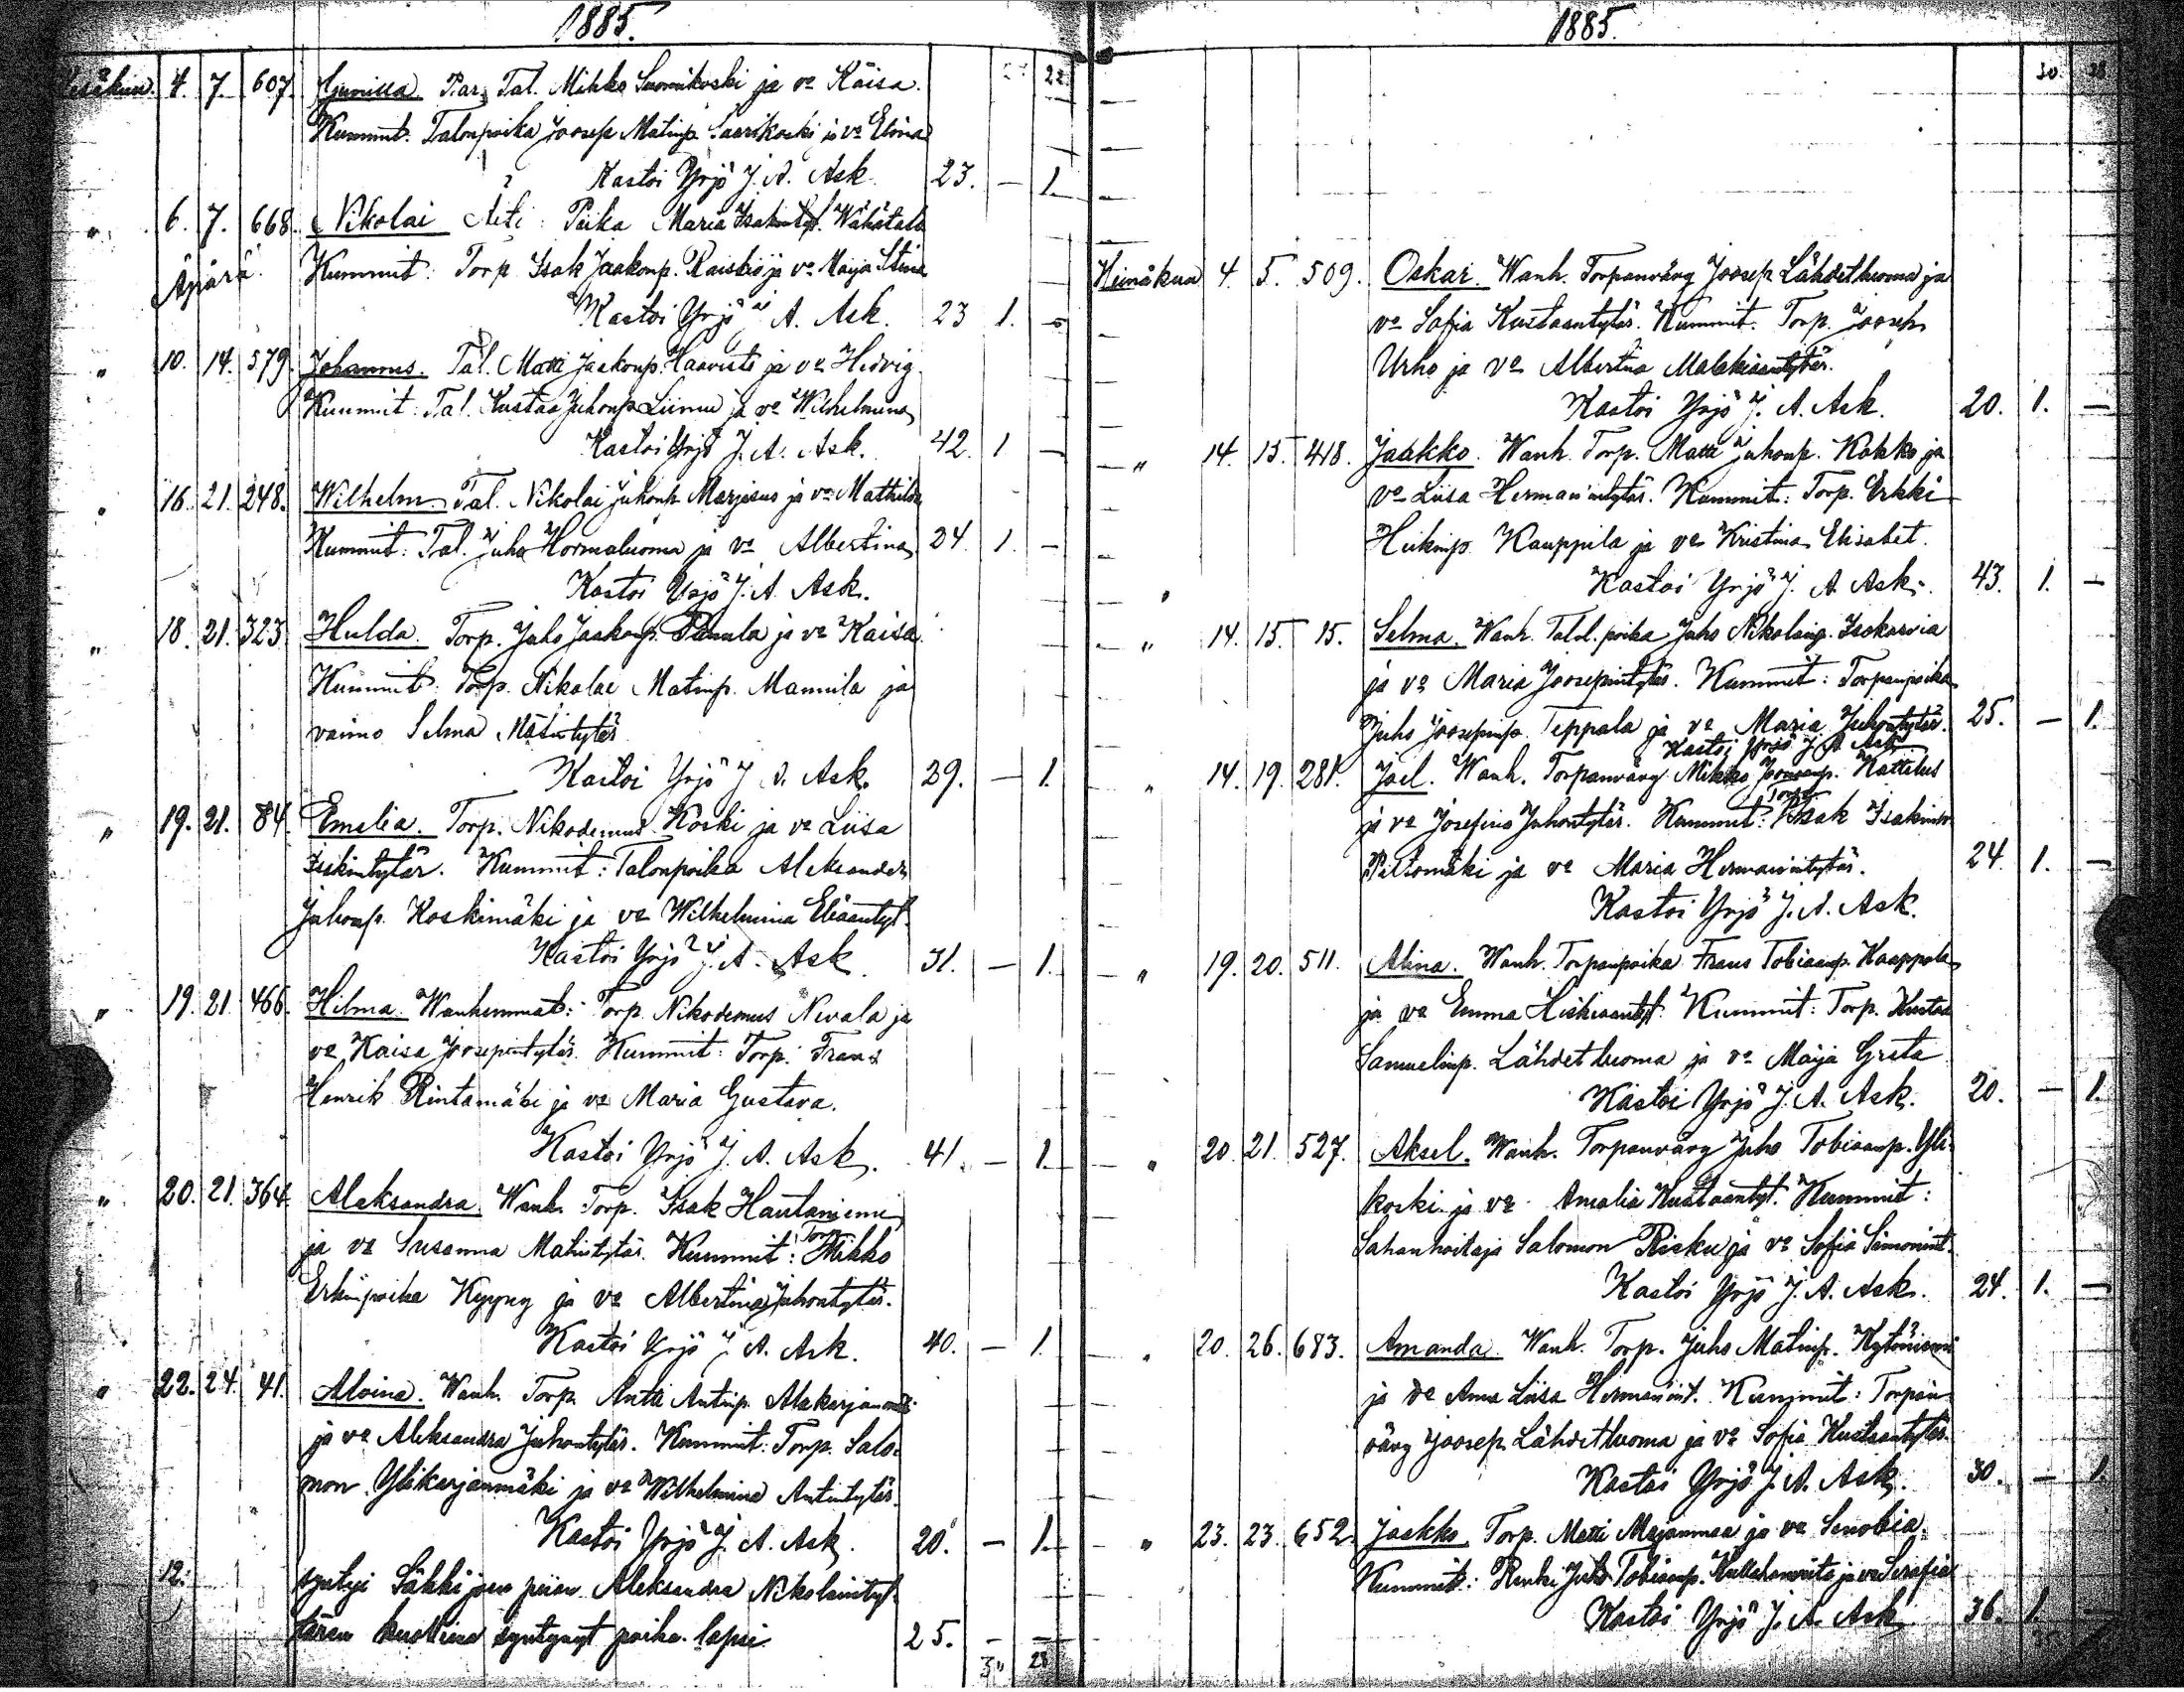 1885.
27 22
Kesäkuu. 4. 7. 607. Gunilla. Par. Tal. Mikko Suomikoski ja vo Kaisa.
Kummit. Talonpoika Joosep Matinp. Saarikoski ja vo Elvina
Kastoi Yrjö J. A. Ask. 23. — 1.
" 6. 7. 668. Nikolai Äiti: Piika Maria Isakintyt. Wähätalo
Äpärä. Kummit: Torp. Isak Jaakonp. Raiskio ja vo Maija Stina
Kastoi Yrjö J. A. Ask. 23 1. —
" 10. 14. 579. Johannes. Tal. Matti Jaakonp. Haavisto ja vo Hedvig.
Kummit: Tal. Kustaa Juhonp. Liimu ja vo Wilhelmina
Kastoi Yrjö J. A. Ask. 42. 1 —
" 16. 21. 248. Wilhelm. Tal. Nikolai Juhonp. Marjusus ja vo Mathilda
Kummit: Tal. Juho Hormaluoma ja vo Albertina 24. 1. —
Kastoi Yrjö J. A. Ask.
" 18. 21. 323. Hulda. Torp. Juho Jaakonp. Panula ja vo Kaisa.
Kummit: Torp. Nikolai Matinp. Mannila ja
vaimo Selma Matintytär
Kastoi Yrjö J. A. Ask. 29. — 1.
" 19. 21. 84. Emelia. Torp. Nikodemus Koski ja vo Liisa
Iisakintytär. Kummit: Talonpoika Aleksander
Juhonp. Koskimäki ja vo Wilhelmina Eliaantyt.
Kastoi Yrjö J. A. Ask. 31. — 1.
" 19. 21. 466. Hilma. Wanhemmat: Torp. Nikodemus Nevala ja
vo Kaisa Joosepintytär. Kummit: Torp. Frans
Henrik Rintamäki ja vo Maria Gustava.
Kastoi Yrjö J. A. Ask. 41. — 1.
" 20. 21. 364. Aleksandra. Wanh. Torp. Isak Hautaniemi
ja vo Susanna Matintytär. Kummit: Torp. Mikko
Erkinpoika Kyyny ja vo Albertina Juhontytär.
Kastoi Yrjö J. A. Ask. 40. — 1.
" 22. 24. 41. Alvina. Wanh. Torp. Antti Antinp. Alakarjanmäki
ja vo Aleksandra Juhontytär. Kummit: Torp. Salo-
mon Ylikarjanmäki ja vo Wilhelmina Antintytär.
Kastoi Yrjö J. A. Ask. 20. — 1.
12. syntyi Säkkijoen piian Aleksandra Nikolaintyt-
tären kuolleena syntynyt poika-lapsi 25. — —
3" 28
1885.
30. 28
Heinäkuu 4. 5. 509. Oskar. Wanh. Torpanvävy Joosep Lähdetluoma ja
vo Sofia Kustaantytär. Kummit. Torp. Joosep
Urho ja vo Albertina Malakiaantytär.
Kastoi Yrjö J. A. Ask. 20. 1. —
" 14. 15. 418. Jaakko. Wanh. Torp. Matti Juhonp. Kokko ja
vo Liisa Hermanintytär. Kummit: Torp. Erkki
Heikinp. Kauppila ja vo Kristina Elisabet.
Kastoi Yrjö J. A. Ask. 43. 1. —
" 14. 15. 15. Selma. Wanh. Talol. poika Juho Nikolainp. Isokarvia
ja vo Maria Joosepintytär. Kummit: Torpanpoika
Juho Joosepinp. Teppala ja vo Maria Juhontytär. 25. — 1.
Kastoi Yrjö J. A. Ask.
" 14. 19. 281. Joel. Wanh. Torpanvävy Mikko Kattelus
ja vo Josefina Juhontytär. Kummit: Torp. Isak Isakinp.
Peltomäki ja vo Maria Hermanintytär. 24. 1. —
Kastoi Yrjö J. A. Ask.
" 19. 20. 511. Alina. Wanh. Torpanpoika Frans Tobiaanp. Kaappola
ja vo Emma Hiskiaantyt. Kummit: Torp. Kustaa
Samuelinp. Lähdetluoma ja vo Maija Greta
Kastoi Yrjö J. A. Ask. 20. — 1.
" 20. 21. 527. Aksel. Wanh. Torpanvävy Juho Tobiaanp. Yli-
koski ja vo Amalia Kustaantyt. Kummit:
Sahanhoitaja Salomon Risku ja vo Sofia Simonint.
Kastoi Yrjö J. A. Ask. 24. 1. —
" 20. 26. 683. Amanda. Wanh. Torp. Juho Matinp. Kytöniemi
ja vo Anna Liisa Hermanint. Kummit: Torpan-
vävy Joosep Lähdetluoma ja vo Sofia Kustaantytär.
Kastoi Yrjö J. A. Ask. 30. — 1.
" 23. 23. 652. Jaakko. Torp. Matti Majanmaa ja vo Senobia.
Kummit: Renki Juho Tobiaanp. ja vo Serafia
Kastoi Yrjö J. A. Ask 36. 1.